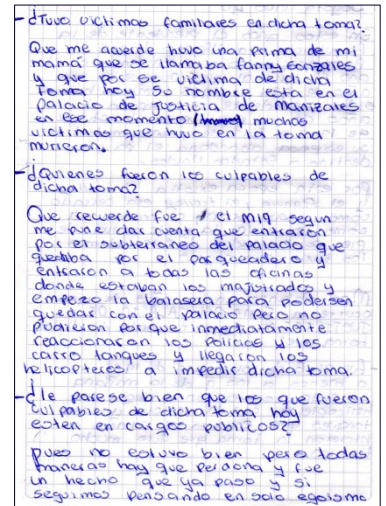 - ¿Tuvo victimas familiares en dicha toma?
Que me acuerde huvo una prima de mi
mamá que se llamaba fanny Gonzales
y que por se victima de dicha
toma hoy su nombre esta en el
palacio de justicia de Manizales
en ese momento muchos
victimas que huvo en la toma
murieron.
- ¿Quienes fueron los culpables de
dicha toma?
Que recuerde fue el M19 segun
me pune dar cuenta que entraron
por el subterraneo del palacio que
quedaba por el parqueadero y
entraron a todas las oficinas
donde estaban los majistrados y
empezo la balasera para podersen
quedar con el palacio pero no
pudieron por que inmediatamente
reaccionaron los policias y los
carro tanques y llegaron los
helicopteros a impedir dicha toma.
- ¿le parese bien que los que fueron
culpables de dicha toma hoy
esten en cargos publicos?
pues no estuvo bien pero todas
maneras hay que perdona y fue
un hecho que ya paso y si
seguimos pensando en solo egoismo